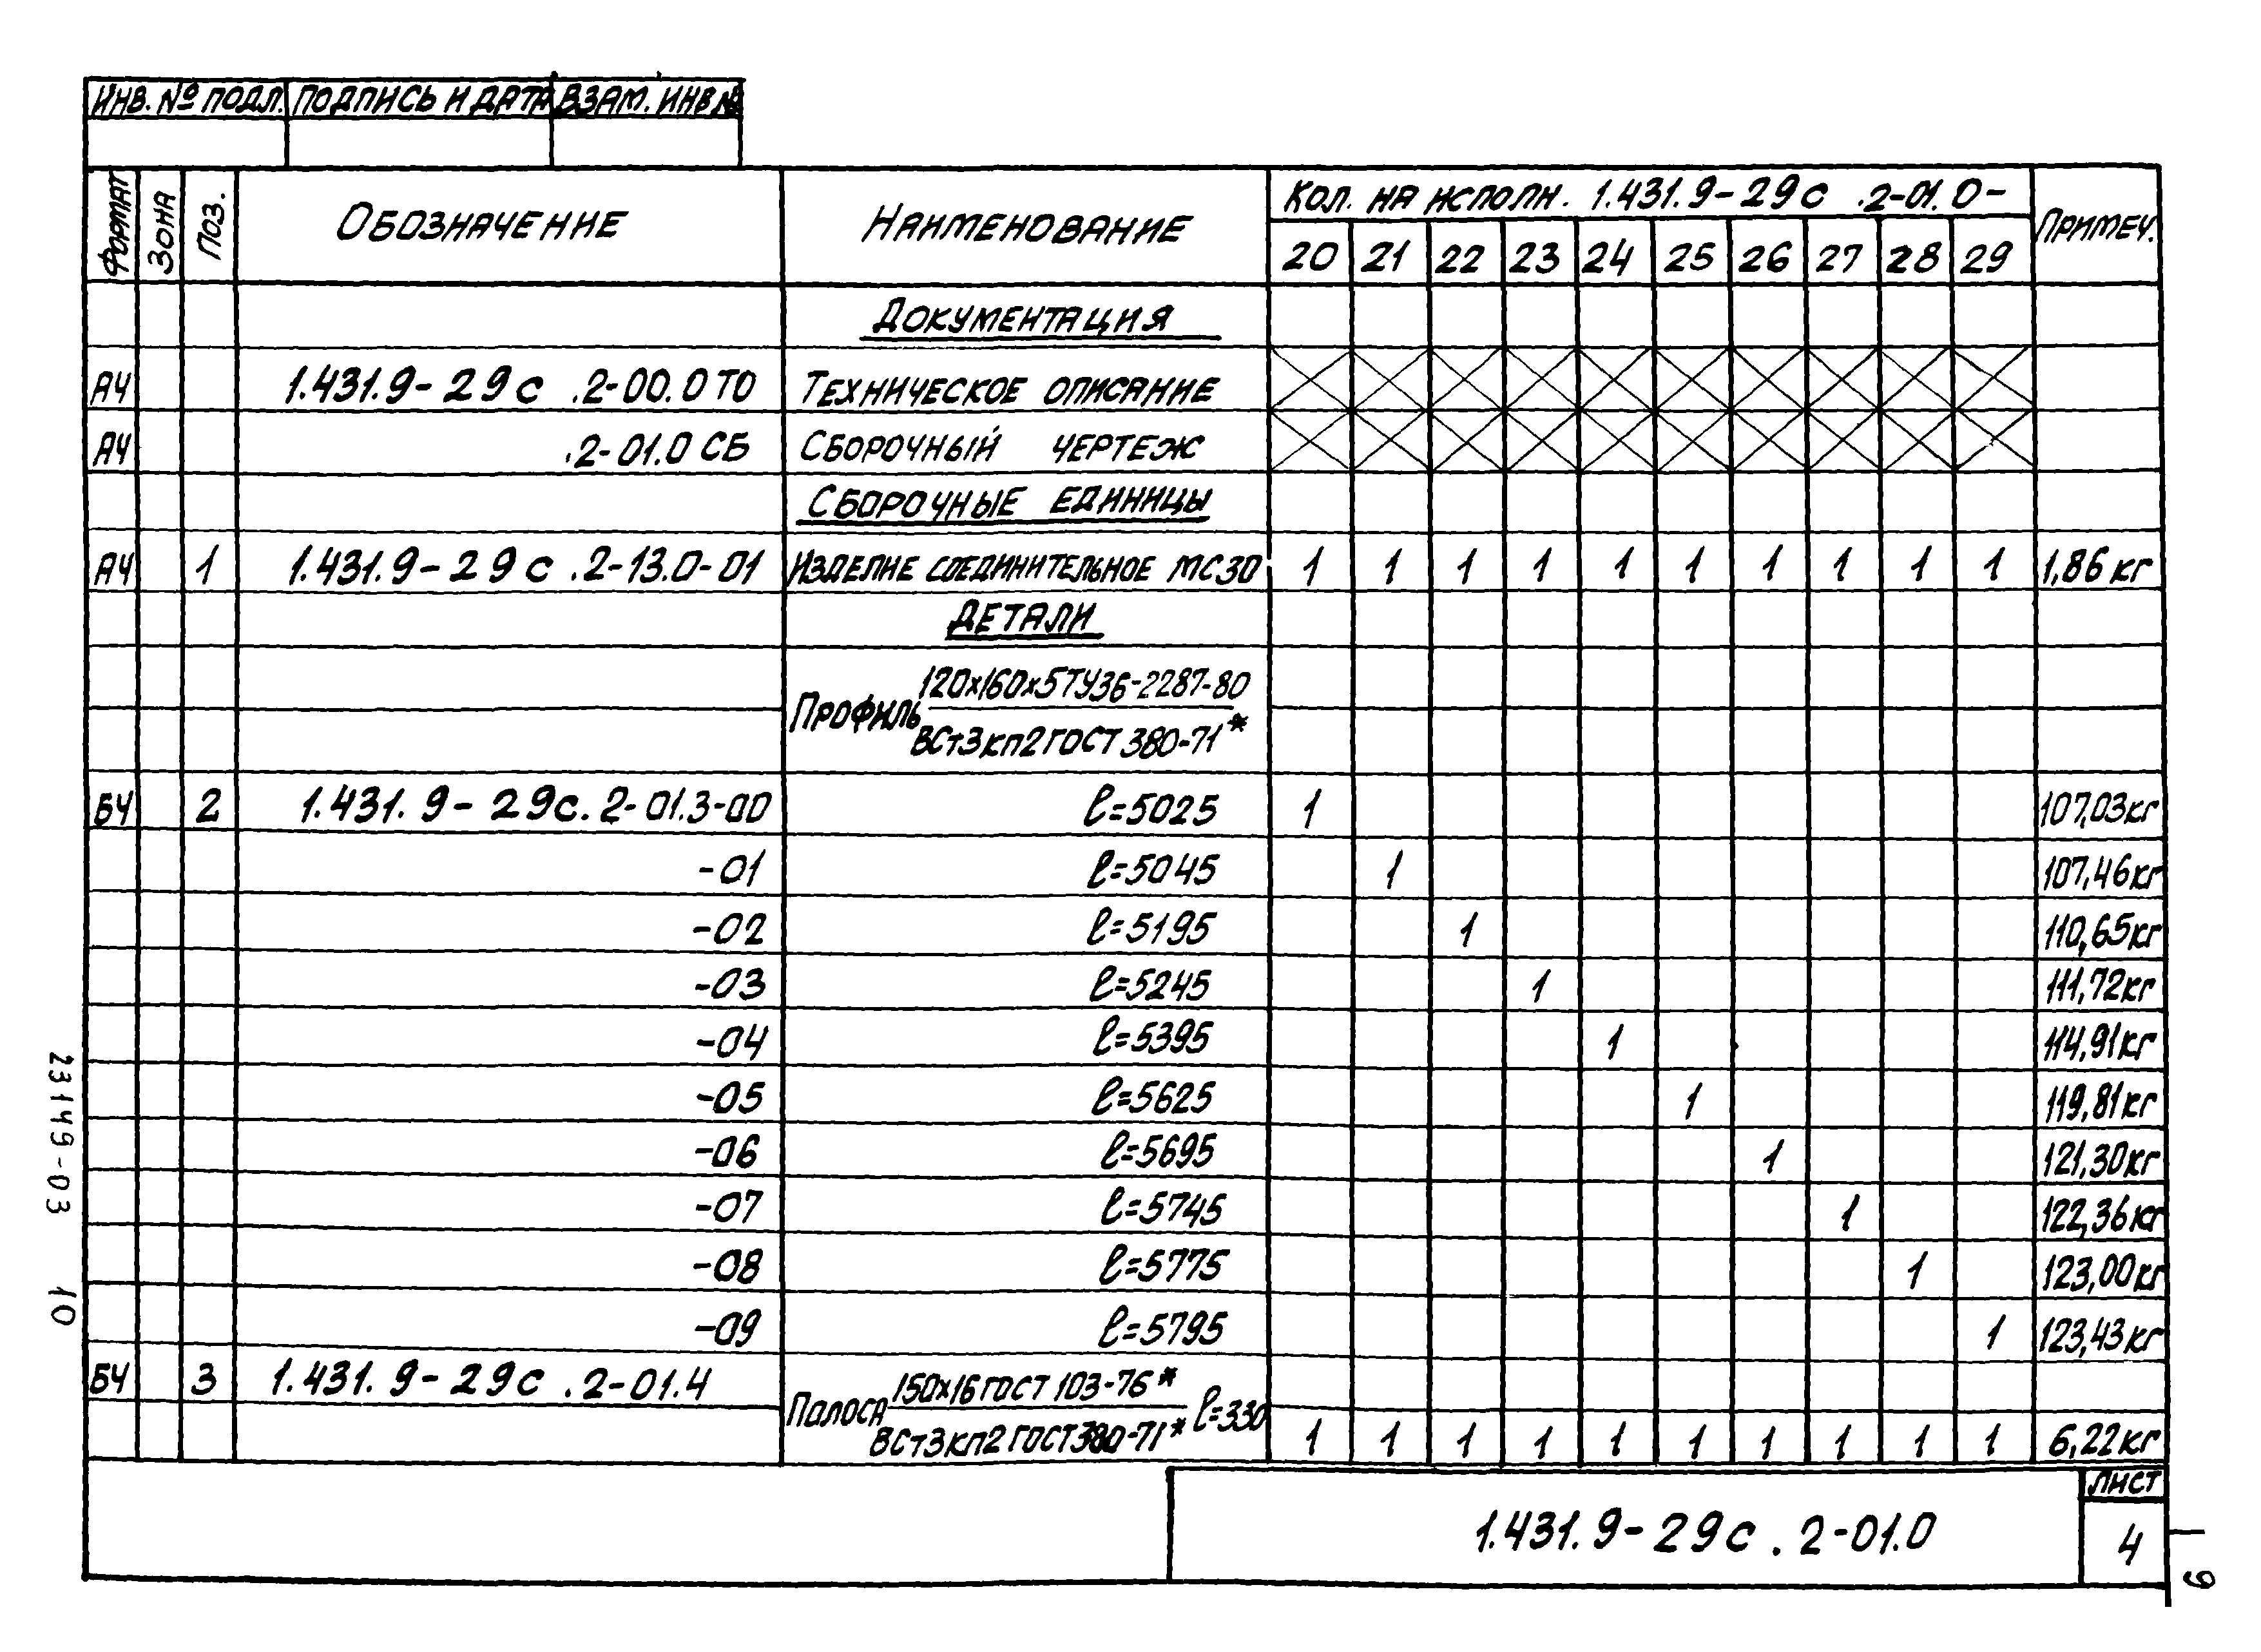 ИНВ. № ПОДЛ. ПОДПИСЬ И ДАТА ВЗАМ. ИНВ №
ФОРМАТ ЗОНА ПОЗ. ОБОЗНАЧЕНИЕ НАИМЕНОВАНИЕ КОЛ. НА ИСПОЛН. 1.431.9-29с .2-01.0- ПРИМЕЧ.
20 21 22 23 24 25 26 27 28 29
ДОКУМЕНТАЦИЯ
А4 1.431.9-29с .2-00.0 ТО ТЕХНИЧЕСКОЕ ОПИСАНИЕ
А4 .2-01.0 СБ СБОРОЧНЫЙ ЧЕРТЕЖ
СБОРОЧНЫЕ ЕДИНИЦЫ
А4 1 1.431.9-29с .2-13.0-01 ИЗДЕЛИЕ СОЕДИНИТЕЛЬНОЕ МС30 1 1 1 1 1 1 1 1 1 1 1,86 кг
ДЕТАЛИ
ПРОФИЛЬ 120х160х5 ТУ36-2287-80
ВСт3кп2 ГОСТ 380-71*
БЧ 2 1.431.9-29с.2-01.3-00 ℓ=5025 1 107,03кг
-01 ℓ=5045 1 107,46кг
-02 ℓ=5195 1 110,65кг
-03 ℓ=5245 1 111,72кг
-04 ℓ=5395 1 114,91кг
-05 ℓ=5625 1 119,81кг
-06 ℓ=5695 1 121,30кг
-07 ℓ=5745 1 122,36кг
-08 ℓ=5775 1 123,00кг
-09 ℓ=5795 1 123,43кг
БЧ 3 1.431.9-29с .2-01.4 ПОЛОСА 150х16 ГОСТ 103-76* ℓ=330
ВСт3кп2 ГОСТ380-71* 1 1 1 1 1 1 1 1 1 1 6,22кг
1.431.9-29с.2-01.0
ЛИСТ
4
23149-03 10
9